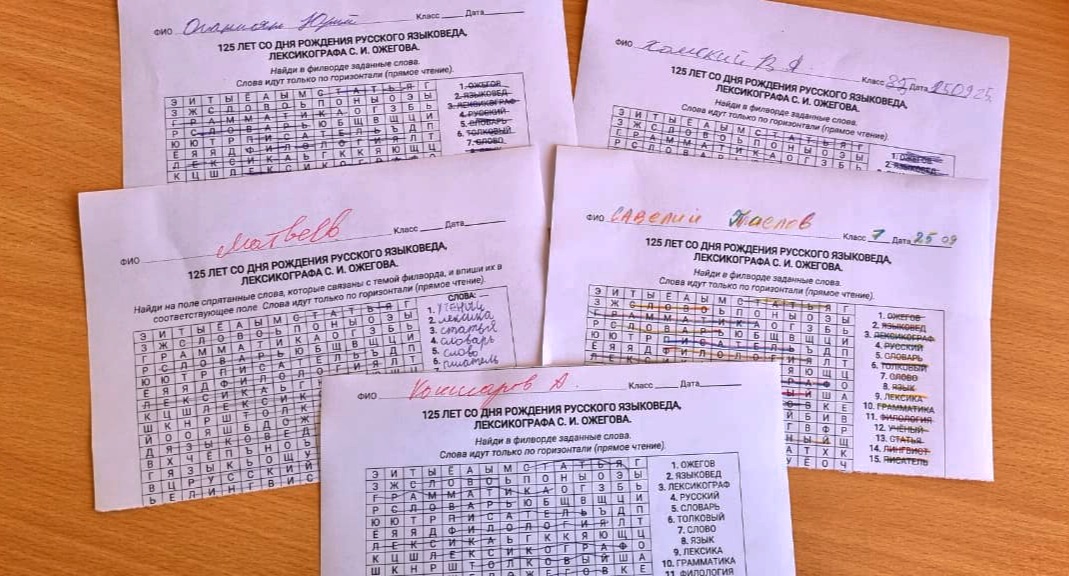 ФИО Класс Дата
125 ЛЕТ СО ДНЯ РОЖДЕНИЯ РУССКОГО ЯЗЫКОВЕДА,
ЛЕКСИКОГРАФА С. И. ОЖЕГОВА.
Найди в филворде заданные слова.
Слова идут только по горизонтали (прямое чтение).
Э И Т Ы Ё А Ы М С Т А Т Ь Я Г
З Ж С Л О В О Ь П О Н Ы О Э Ы
Г Р А М М А Т И К А О Г З Б Ь
Р С Л О В А Р Ь Ю Б Щ В Щ Ц И
Ю Ю Т Р П И С А Т Е Л Ь Ъ Д П
Ё Я Я Д Ф И Л О Л О Г И Я Л Т
Л Е К С И К А Ь Г К К Я Ю Щ Ц
К Ц Ш Л Е К С И К О Г Р А Ф О
1. ОЖЕГОВ
2. ЯЗЫКОВЕД
3. ЛЕКСИКОГРАФ
4. РУССКИЙ
5. СЛОВАРЬ
6. ТОЛКОВЫЙ
7. СЛОВО
ФИО Класс Дата 25.09.25.
125 ЛЕТ СО ДНЯ РОЖДЕНИЯ РУССКОГО ЯЗЫКОВЕДА,
ЛЕКСИКОГРАФА С. И. ОЖЕГОВА.
Найди в филворде заданные слова.
Слова идут только по горизонтали (прямое чтение).
Э И Т Ы Ё А Ы М С Т А Т Ь Я Г
З Ж С Л О В О Ь П О Н Ы О Э Ы
Г Р А М М А Т И К А О Г З Б Ь
Р С Л О В А Р Ь
1. ОЖЕГОВ
2. ЯЗЫКОВЕД
ФИО Матвеев Класс Дата
125 ЛЕТ СО ДНЯ РОЖДЕНИЯ РУССКОГО ЯЗЫКОВЕДА,
ЛЕКСИКОГРАФА С. И. ОЖЕГОВА.
Найди на поле спрятанные слова, которые связаны с темой филворда, и впиши их в
соответствующее поле. Слова идут только по горизонтали (прямое чтение).
Э И Т Ы Ё А Ы М С Т А Т Ь Я Г
З Ж С Л О В О Ь П О Н Ы О Э Ы
Г Р А М М А Т И К А О Г З Б Ь
Р С Л О В А Р Ь Ю Б Щ В Щ Ц И
Ю Ю Т Р П И С А Т Е Л Ь Ъ Д П
Ё Я Я Д Ф И Л О Л О Г И Я Л Т
Л Е К С И К А Ь Г
К Ц Ш Л Е К С И
Ш К Н Р Ш Т О Л К
СЛОВА:
1. учёный
2. лексика
3. статья
4. словарь
5. слово
6. писатель
ФИО САВЕЛИЙ Класс 7 Дата 25 09
125 ЛЕТ СО ДНЯ РОЖДЕНИЯ РУССКОГО ЯЗЫКОВЕДА,
ЛЕКСИКОГРАФА С. И. ОЖЕГОВА.
Найди в филворде заданные слова.
Слова идут только по горизонтали (прямое чтение).
Э И Т Ы Ё А Ы М С Т А Т Ь Я Г
З Ж С Л О В О Ь П О Н Ы О Э Ы
Г Р А М М А Т И К А О Г З Б Ь
Р С Л О В А Р Ь Ю Б Щ В Щ Ц И
Ю Ю Т Р П И С А Т Е Л Ь Ъ Д П
Ё Я Я Д Ф И Л О Л О Г И Я Л Т
1. ОЖЕГОВ
2. ЯЗЫКОВЕД
3. ЛЕКСИКОГРАФ
4. РУССКИЙ
5. СЛОВАРЬ
6. ТОЛКОВЫЙ
7. СЛОВО
8. ЯЗЫК
9. ЛЕКСИКА
10. ГРАММАТИКА
11. ФИЛОЛОГИЯ
12. УЧЁНЫЙ
13. СТАТЬЯ
14. ЛИНГВИСТ
15. ПИСАТЕЛЬ
ФИО Кошмаров А. Класс Дата
125 ЛЕТ СО ДНЯ РОЖДЕНИЯ РУССКОГО ЯЗЫКОВЕДА,
ЛЕКСИКОГРАФА С. И. ОЖЕГОВА.
Найди в филворде заданные слова.
Слова идут только по горизонтали (прямое чтение).
Э И Т Ы Ё А Ы М С Т А Т Ь Я Г
З Ж С Л О В О Ь П О Н Ы О Э Ы
Г Р А М М А Т И К А О Г З Б Ь
Р С Л О В А Р Ь Ю Б Щ В Щ Ц И
Ю Ю Т Р П И С А Т Е Л Ь Ъ Д П
Ё Я Я Д Ф И Л О Л О Г И Я Л Т
Л Е К С И К А Ь Г К К Я Ю Щ Ц
К Ц Ш Л Е К С И К О Г Р А Ф О
Ш К Н Р Ш Т О Л К О В Ы Й Ш А
1. ОЖЕГОВ
2. ЯЗЫКОВЕД
3. ЛЕКСИКОГРАФ
4. РУССКИЙ
5. СЛОВАРЬ
6. ТОЛКОВЫЙ
7. СЛОВО
8. ЯЗЫК
9. ЛЕКСИКА
10. ГРАММАТИКА
11. ФИЛОЛОГИЯ